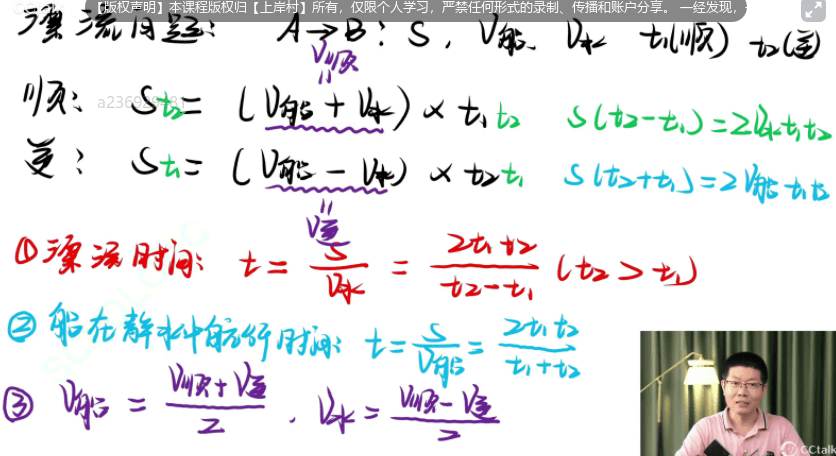 【版权声明】本课程版权归【上岸村】所有，仅限个人学习，严禁任何形式的录制、传播和账户分享。 一经发现，
漂流问题： A→B：S，V船 V水 t₁(顺) t₂(逆)
V顺
顺： St₂ = (V船 + V水) × t₁t₂ S(t₂-t₁) = 2V水t₁t₂
逆： St₁ = (V船 - V水) × t₂t₁ S(t₂+t₁) = 2V船t₁t₂
V逆
①漂流时间： t = S/V水 = 2t₁t₂/(t₂-t₁) (t₂ > t₁)
②船在静水中航行时间： t = S/V船 = 2t₁t₂/(t₁+t₂)
③ V船 = (V顺+V逆)/2 ，V水 = (V顺-V逆)/2
CCtalk